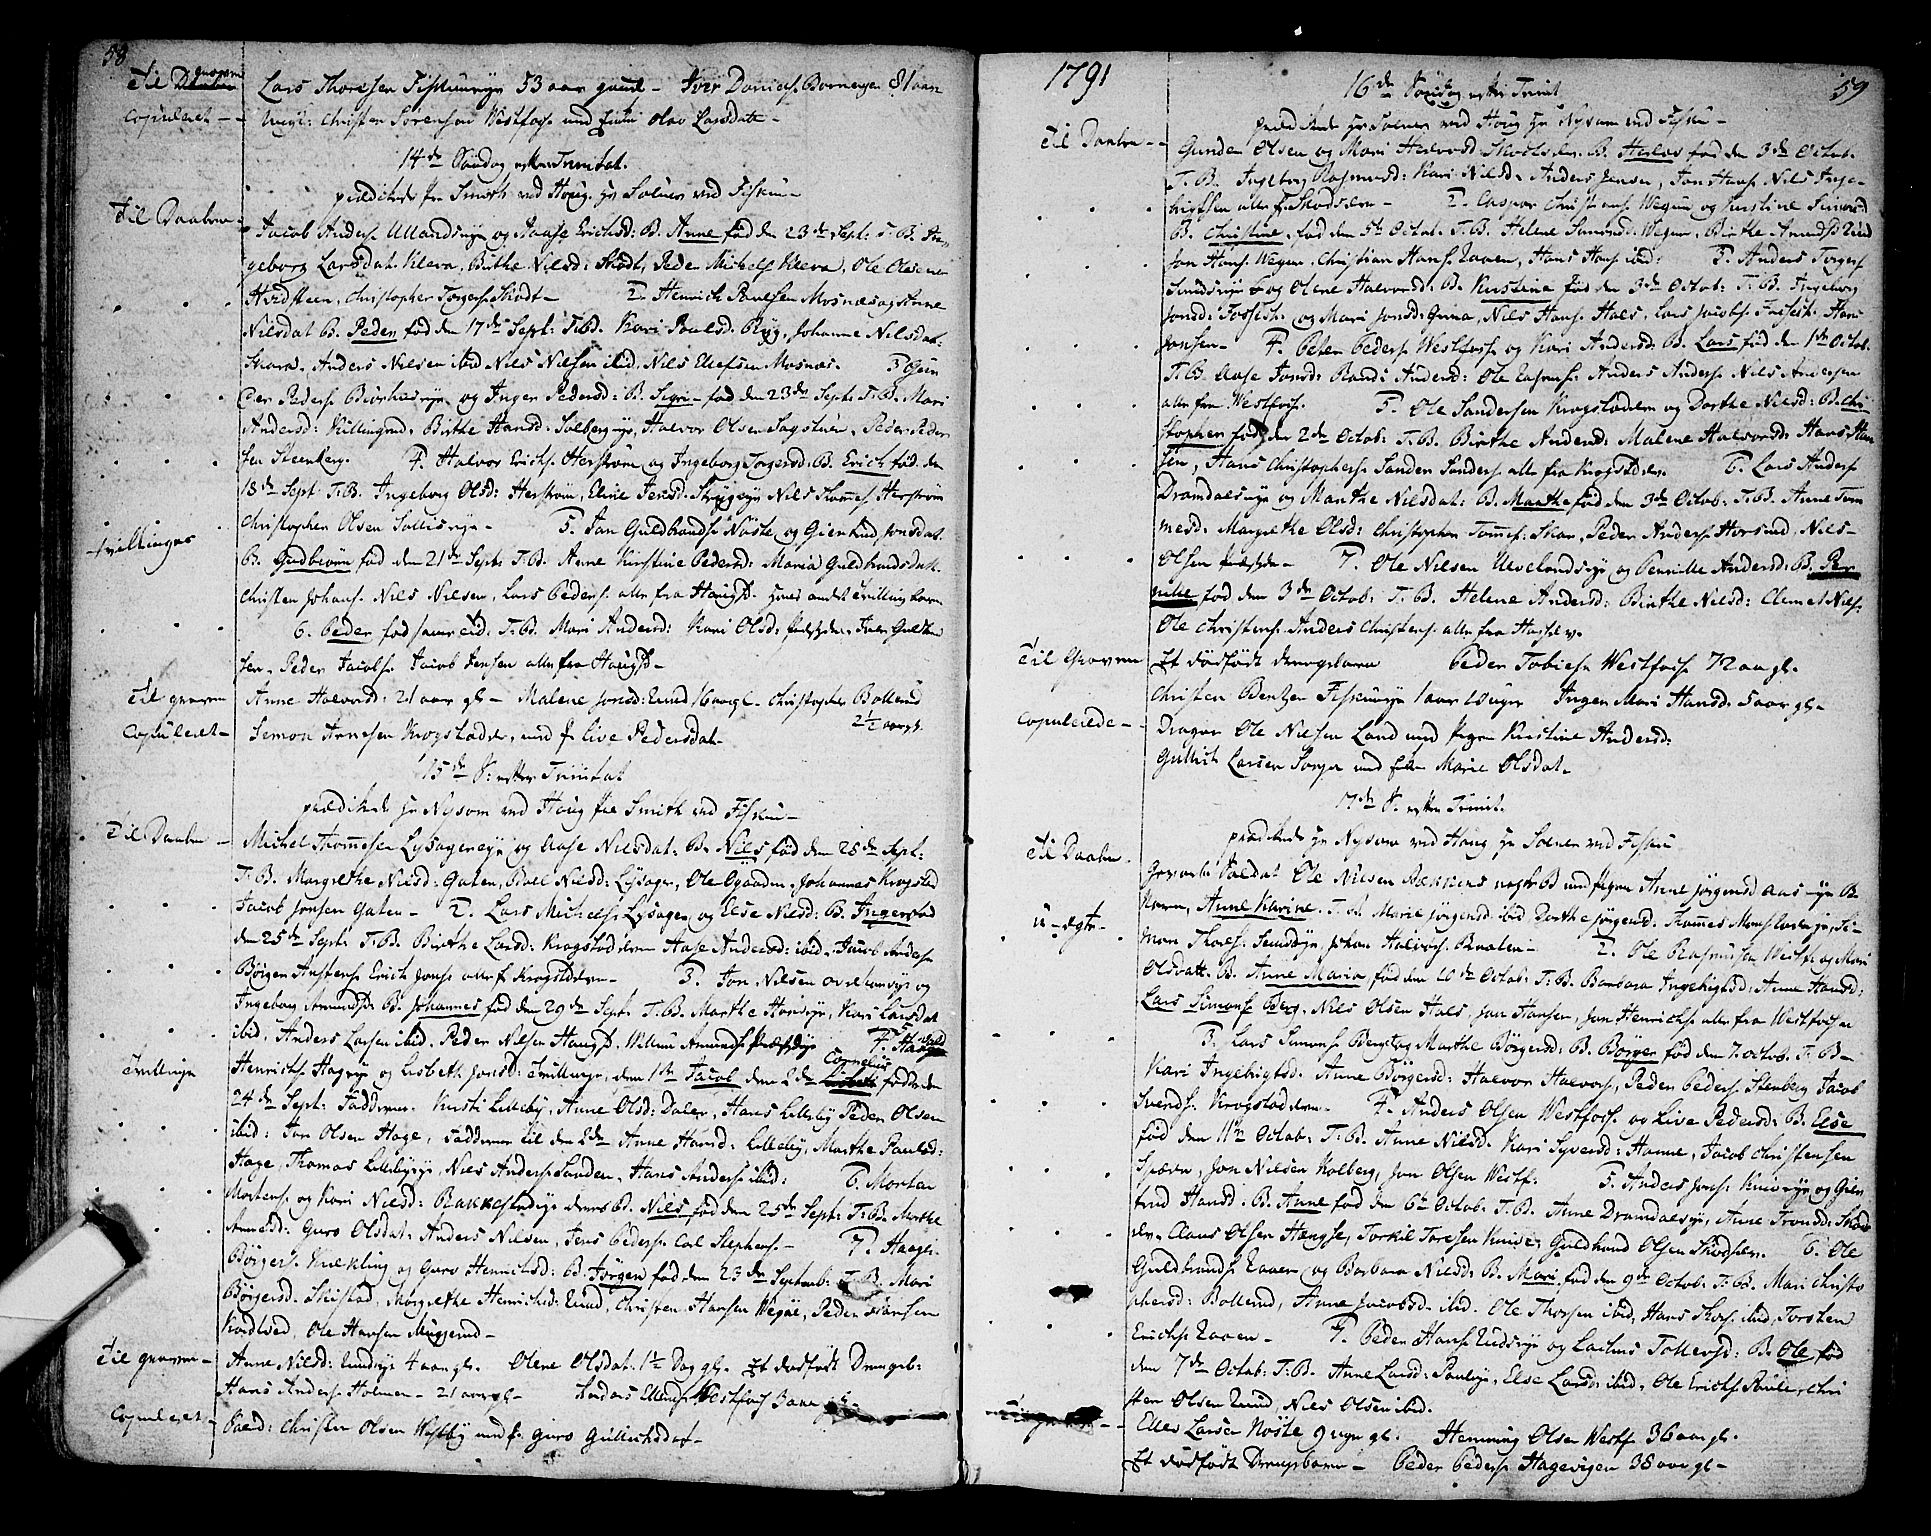 58
Til Daaben graven Lars Thoresen Fiskumeye 53 aar gaml - Iver Daniels. Borneeyer 81 aar
Copuleret - Ungk: Christen Sørensen Westfos: med Enken Olav Larsdatr -
14de Søndag efter Trinitat.
prædikede hr Smith ved Houg hr Solner ved Fiskum -
Til Daaben - Jacob Anders. Ullandseye og Aase Erichsd: B. Anne fød den 23de Sept: T.B. In-
geborg Larsdat. Kleva, Birthe Nilsd: Skodt, Peder Michels. Kleva, Ole Olsen
Hvidsteen, Christopher Torgers. Skodt - 2. Henrich Povelsen Mosnæs og Anne
Nilsdat B. Peder fød den 17de Sept: T.B. Kari Paulsd. Ryg, Johanne Nilsdat.
Skara. Anders Nilsen ibid Nils Nilsen ibid, Nils Ellefsen Mosnæs. 3 Gun
der Peders. Biørhuseye og Inger Pedersd: B. Sigri - fød den 23de Sept: T.B. Mari
Andersd: Killingrud, Birthe Hansd: Solbergeye, Halvor Olsen Sagstuen, Peder Peder
sen Steenberg. 4. Halvor Erichs. Herstrøm og Ingeborg Torgersd: B. Erich fød den
18de Sept: T.B. Ingeborg Olsd: Herstrøm, Eline Jensd: Nils Thomes. Herstrøm
Christopher Olsen Sollieeye - 5. Jan Guldbrands. Nøste og Giertrud Jonsdat.
tvillinger B. Gudbiørn fød den 21de Sept: T.B. Anne Kirstine Pedersd: Maria Guldbrandsdatt.
Christen Johans. Nils Nilsen, Lars Peders. alle fra Hougs. hvis andet Tvilling barn
6. Peder fød samme tid. T.B. Mari Andersd: Kari Olsd: Iver Guldbr
sen - Peder Jacobs. Jacob Jensen alle fra Hougs. -
Til graven Anne Halvorsd: 21 aar gl - Malene Jonsd: Rud 16 aar gl - Christopher Bollerud
2½ aar gl.
Copuleret - Semon Arnesen Krogstadder, med p. Live Pedersdat -
15de S: efter Trinitat
prædikede hr Nysom ved Houg hr Smith ved Fiskum -
Til Daaben - Michel Thomesen Lysagereye og Aase Nilsdat: B. Nils fød den 28de Sept:
T.B. Margrethe Nilsd: Gaten, Boel Nilsd: Lysager, Ole Johannes Krogstad
Jacob Jonsen Gaten - 2. Lars Michels. Lysager og Else Nilsd: B. Ingerstad
den 25de Sept: T.B. Birthe Larsd: Krogstadderen Aase Andersd: ibid - Jacob Anders.
Børger Erich Jons. alle f. Krogstadderen - 3. Jon Nilsen og
Ingeborg Amundsd: B. Johannes fød den 29de Sept: T.B. Marthe Kari Larsdat
ibid, Anders Larsen ibid. Peder Nilsen Hougs. Willum Amunds. 5. Hans
Tvillinge Henrichs. Hageeye og Lisbeth Jonsd: Tvillinger, den 1te Jacob den 2de Cornelius fødde den
24de Sept: Fadderne. Kirsti Lilleby, Anne Olsd: Daler, Hans Lilleby Peder Olsen
ibid: Jon Olsen Hage, Fadderne til den 2de Anne Hansd: Lilleby, Marthe Paulsd:
Hage, Thomas Lillebyeye, Nils Anders. Sanden, Hans Anders. ibid: 6. Morten
Mortens. og Kari Nilsd: B. Nils fød den 25de Sept: T.B. Marthe
Arnesd: Guro Olsdat: Anders Nilsen, Jens Peders. Carl Stephens. - 7. Haagen
Børgers. Kiækling og Guro Henrichsd: B. Jørgen fød den 23de Septemb: T.B. Mari
Børgersd. Skistad, Margrethe Henrichsd: Lund, Christen Hansen Wegge, Peder Hansen
Kaldved, Ole Hansen Muggerud -
Til graven - Anne Nilsd: Rudseye 4 aar gl. Olene Olsdat. 1½ Dag gl. Et dødfødt Drengeb:
Hans Anders. Holmen - 21 aar gl - Anders Ellings. Westfos
Copuleret - Christen Olsen Westby med p. Guro Gulliksdat -
1791 59
16de Søndag efter Trinit
prædikede hr Solner ved Houg hr Nysom ved Fisku -
Til Daaben - Gunder Olsen og Mari Halvorsd: Skodsæder. B. Helvor fød den 3de Octob.
T.B. Ingeborg Rasmusd: Kari Nilsd: Anders Jensen, Jon Hans. Nils Inge-
brigtsen alle f. Skodseren - 2. Caspar Christians. Wegum og Kirstine Simonsd
B. Christine, fød den 5te Octob. T.B. Helene Samuelsd: Wegum, Birthe Amundsd Rud
Jon Hans. Wegum, Christian Hans. Raaen, Hans Hans. ibid: 3. Anders Torgers.
Sundseye og Olene Halvorsd: B. Kirstine fød den 3de Octob: T.B. Ingeborg
Jonsd: Fossesh: og Mari Jonsd: Gruna, Nils Hans. Hals, Lars Jacobs. Fossesh. Hans
Jonsen - 4. Peter Peders. Westfos: og Kari Andersd: B. Lars fød den 1te Octob.
T.B. Aase Jonsd: Randi Andersd: Ole Rasmus. Anders Anders. Nils Andersen
alle fra Westfos. 5. Ole Sandersen Krogstadderen og Dorthe Nilsd: B. Chri
stopher fød den 2de Octob: T.B. Birthe Andersd: Malene Halvorsd: Hans Han
sen, Hans Christophers. Sander Sanders. alle fra Krogstaden. 6. Lars Anders.
Dramdalseye og Marthe Nilsdat: B. Marthe fød den 3de Octob: T.B. Anne Tom
mesd: Margrethe Olsd: Christopher Tommes. Skar, Peder Anders. Horsrud, Nils
Olsen - 7. Ole Nilsen Uevelandseye og Pernille Andersd: B. Per
nille fød den 3de Octob: T.B. Helene Andersd: Birthe Nilsd: Clemet Nils.
Ole Christens. Anders Christens. alle fra Hassel v.
Til Graven Et dødfødt drengebarn Peder Tobies. Westfos 72 aar gl.
Christen Bentzen Fiskumeye 1 aar 10 uger Inger Mari Hansd. 5 aar gl -
Copulerede - Dragon Ole Nielsen Land med pigen Kirstine Andersd:
Gullich Larsen Sorger med Marie Olsdat -
17de S. efter Trinit.
prædikede hr Nysom ved Houg hr Solner ved Fisku
Til Daaben. Gevorben Soldat Ole Nilsen Bækkens B med pigen Anne Jørgensd Aaseye B.
u-ægte - Anne Karine. T.B. Marie Jørgensd. ibid Dorthe Jørgensd. Thommes Si-
mon Thores. Johan Halvors. Braaten - 2. Ole Rasmusen Westf. og Mari
Olsdatt. B. Anne Maria fød den 10de Octob: T.B. Barbara Ingebrigtsd: Anne Hansd:
Lars Simons. Berg, Nils Olsen Hals, Jan Hansen, Jan Henrichs. alle fra Westfossen
3. Lars Simons. Berg og Marthe Børgersd: B. Børger fød den 7. Octob: T.B. -
Kari Ingebrigtsd. Anne Børgersd: Halvor Halvors. Peder Peders. Stenberg Jacob
Svends. Krogstadderen - 4. Anders Olsen Westfos. og Live Pedersd: B. Else
fød den 11te Octob: T.B. Anne Nilsd. Kari Syversd: Hanne, Jacob Christensen
Spærn, Jon Nilsen Kolberg, Jon Olsen Westf: 5. Anders Jons. Kniveeye og Gier
trud Hansd: B. Anne fød den 6te Octob: T.B. Anne Dramdalseye, Anne Trondsd: Skod
der, Claus Olsen Haugse, Torkil Toresen Knive, Guldbrand Olsen Skodseder. 6. Ole
Guldbrands. Raaen og Barbara Nilsd: B. Mari, fød den 9de Octob: T.B. Mari Christo
phersd: Bollerud, Anne Jacobsd. ibid. Ole Thorsen ibid, Hans Thors. ibid, Torsten
Erichs. Raaen - 7. Peder Hans. Rudseye og Tollevsd: B. Ole fød
den 7de Octob: T.B. Anne Larsd: Else Larsd: ibid, Ole Erichs. Chri
sten Olsen Rud, Nils Olsen ibid.
Til graven - Ellev Larsen Nøste 9 ugr gl. Hemming Olsen Westf. 36 aar gl.
Et dødfødt Drengebarn - Peder Peders. Hagevigen 38 aar gl -